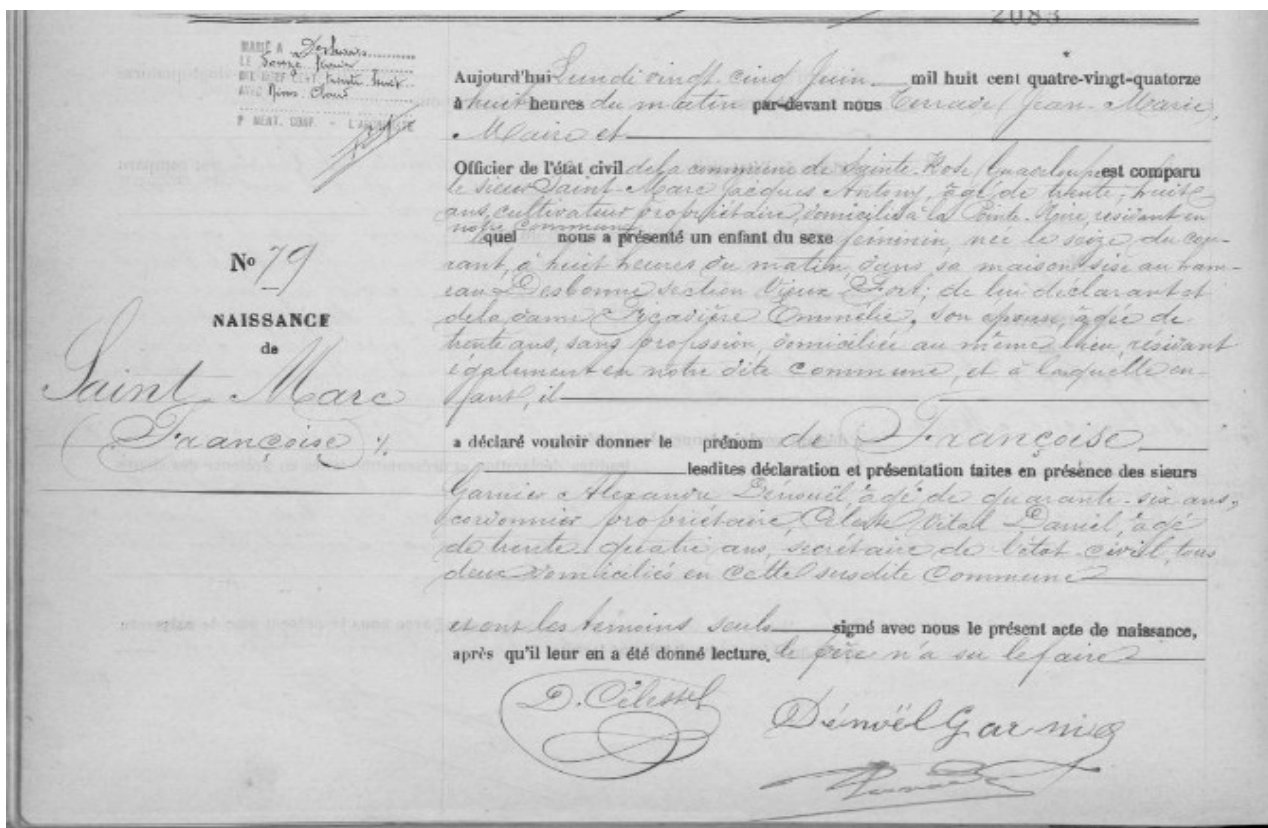 2083
MARIÉ A Deshaies
LE Douze Janvier
MIL NEUF CENT trente huit
AVEC Nims Cloud
P MENT. CONF. - L'ARCHIVISTE
Aujourd'hui Lundi vingt-cinq Juin mil huit cent quatre-vingt-quatorze
à huit heures du matin par-devant nous Terrade, Jean-Marie,
Maire et
Officier de l'état civil de la commune de Sainte-Rose (Guadeloupe) est comparu
le sieur Saint-Marc Jacques Antony, âgé de trente-huit
ans, cultivateur propriétaire, domicilié à la Pointe-Noire, résidant en
notre commune
quel nous a présenté un enfant du sexe féminin, née le seize du cou-
rant, à huit heures du matin, dans sa maison sise au ham-
eau Desbonne section Vieux-Fort; de lui déclarant et
de la dame Emmélie, son épouse, âgée de
trente ans, sans profession, domiciliée au même lieu, résidant
également en notre dite commune, et à laquelle en-
fant, il
No 79
NAISSANCE
de
Saint-Marc
(Françoise) %
a déclaré vouloir donner le prénom de Françoise
lesdites déclaration et présentation faites en présence des sieurs
Garnier Alexandre Dénoël, âgé de quarante-six ans,
cordonnier propriétaire, Céleste Vital Daniel, âgé
de trente-quatre ans, secrétaire de l'état civil, tous
deux domiciliés en cette susdite commune
et ont les témoins seuls signé avec nous le présent acte de naissance,
après qu'il leur en a été donné lecture. le père n'a su le faire
D. Célestel
Dénoël Garnier